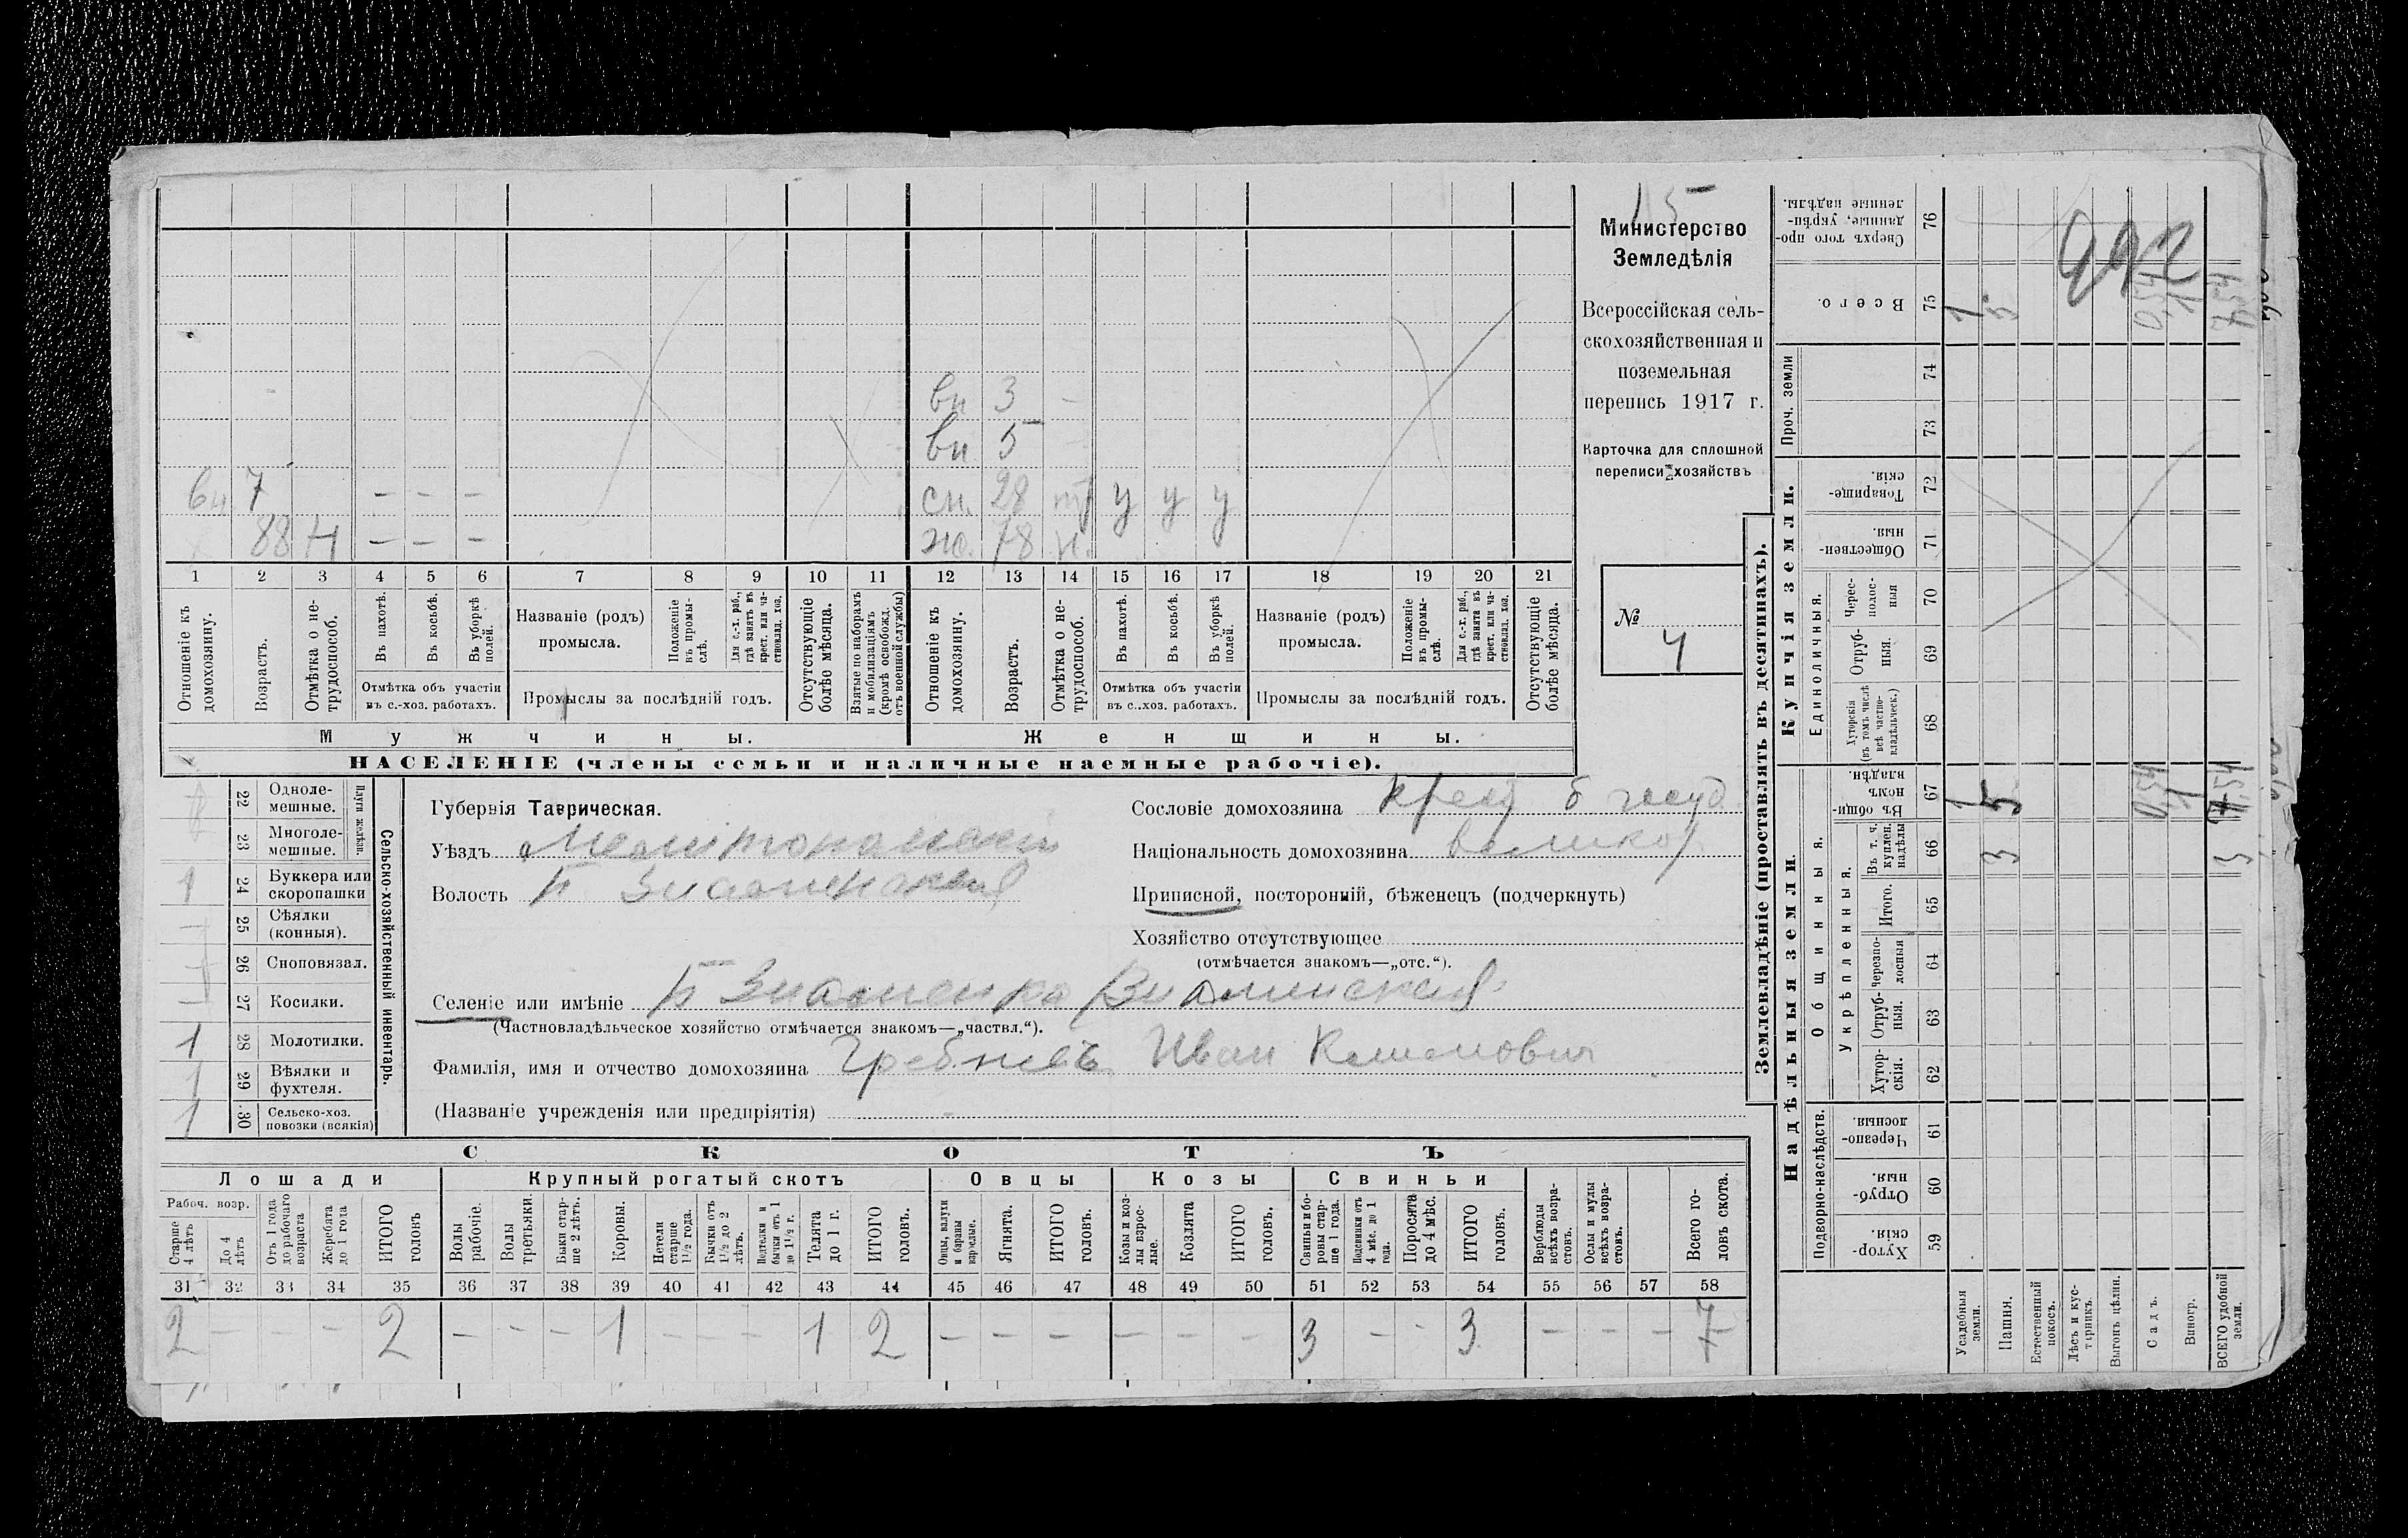 15
Министерство
Земледѣлія
Всероссійская сель-
скохозяйственная и
поземельная
перепись 1917 г.
Карточка для сплошной
переписи хозяйствъ
№
4
вн 3 -
вн 5
вн 7 - - -
сн. 28 у у у
88 Н - - -
ж. 78 н.
1 2 3 4 5 6 7 8 9 10 11 12 13 14 15 16 17 18 19 20 21
Отношеніе къ домохозяину.
Возрастъ.
Отмѣтка о не-трудоспособ.
Въ пахотѣ.
Въ косьбѣ.
Въ уборкѣ полей.
Отмѣтка объ участіи
въ с.-хоз. работахъ.
Названіе (родъ)
промысла.
Положеніе въ промы-слѣ.
Для с.-х. раб., гдѣ занятъ въ крест. или ча-стновлад. хоз.
Промыслы за послѣдній годъ.
Отсутствующіе болѣе мѣсяца.
Взятые по наборамъ и мобилизаціямъ (кромѣ освобожд. отъ военной службы)
Отношеніе къ домохозяину.
Возрастъ.
Отмѣтка о не-трудоспособ.
Въ пахотѣ.
Въ косьбѣ.
Въ уборкѣ полей.
Отмѣтка объ участіи
въ с..хоз. работахъ.
Названіе (родъ)
промысла.
Положеніе въ промы-слѣ.
Для с.-х. раб., гдѣ занята въ крест. или ча-стновлад. хоз.
Промыслы за послѣдній годъ.
Отсутствующіе болѣе мѣсяца.
Мужчины.
Женщины.
НАСЕЛЕНІЕ (члены семьи и наличные наемные рабочіе).
Сельско-хозяйственный инвентарь.
Плуги желѣзн.
22 Одноле-мешные.
23 Многоле-мешные.
1 24 Буккера или скоропашки
- 25 Сѣялки (конныя).
26 Сноповязал.
- 27 Косилки.
1 28 Молотилки.
1 29 Вѣялки и фухтеля.
1 30 Сельско-хоз. повозки (всякія)
Губернія Таврическая.
Уѣздъ Мелитопольскій
Волость Б Знаменская
Сословіе домохозяина крест б госуд
Національность домохозяина великор
Приписной, посторонній, бѣженецъ (подчеркнуть)
Хозяйство отсутствующее
(отмѣчается знакомъ—„отс.“).
Селеніе или имѣніе Б Знаменка Знаменская
(Частновладѣльческое хозяйство отмѣчается знакомъ—„частвл.“).
Фамилія, имя и отчество домохозяина Гребневъ Иван Климович
(Названіе учрежденія или предпріятія)
СКОТЪ
Лошади
Крупный рогатый скотъ
Овцы
Козы
Свиньи
Рабоч. возр.
Старше 4 лѣтъ
До 4 лѣтъ
Отъ 1 года до рабочаго возраста
Жеребята до 1 года
ИТОГО головъ
Волы рабочіе.
Волы третьяки.
Быки стар-ше 2 лѣтъ.
Коровы.
Нетели старше 1½ года.
Бычки отъ 1½ до 2 лѣтъ.
Подтелки и бычки отъ 1 до 1½ г.
Телята до 1 г.
ИТОГО головъ.
Овцы, валухи и бараны взрослые.
Ягнята.
ИТОГО головъ.
Козы и коз-лы взрос-лые.
Козлята
ИТОГО головъ.
Свиньи и бо-ровы стар-ше 1 года.
Подсвинки отъ 4 мѣс. до 1 года.
Поросята до 4 мѣс.
ИТОГО головъ.
Верблюды всѣхъ возра-стовъ.
Ослы и мулы всѣхъ возра-стовъ.
Всего го-ловъ скота.
31 32 33 34 35 36 37 38 39 40 41 42 43 44 45 46 47 48 49 50 51 52 53 54 55 56 57 58
2 - - - 2 - - - 1 - - - 1 2 - - - - - - 3 - - 3 - - - 7
Землевладѣніе (проставлять въ десятинахъ).
Надѣльныя земли.
Купчія земли.
Проч. земли
Подворно-наслѣдств.
Общинныя.
Укрѣпленныя.
Единоличныя.
Сверхъ того про-данные, укрѣп-ленные надѣлы. 76
Всего. 75 1 5 0,54 1 7,54
74
73
Товарище-скія. 72
Обществен-ныя 71
Черес-полос-ныя 70
Отруб-ныя. 69
Хуторскія (въ томъ числѣ всѣ частно-владѣльческ.) 68
Въ общи-номъ владѣн. 67 1 5 0,54 1 7,54
Въ т. ч. куплен. надѣлы 66 3 3
Итого. 65
Черезпо-лосныя 64
Отруб-ныя. 63
Хутор-скія. 62
Черезпо-лосныя 61
Отруб-ныя 60
Хутор-скія. 59
Усадебныя земли.
Пашня.
Естественный покосъ.
Лѣсъ и кус-тарникъ.
Выгонъ цѣлин.
Садъ.
Виногр.
ВСЕГО удобной земли.